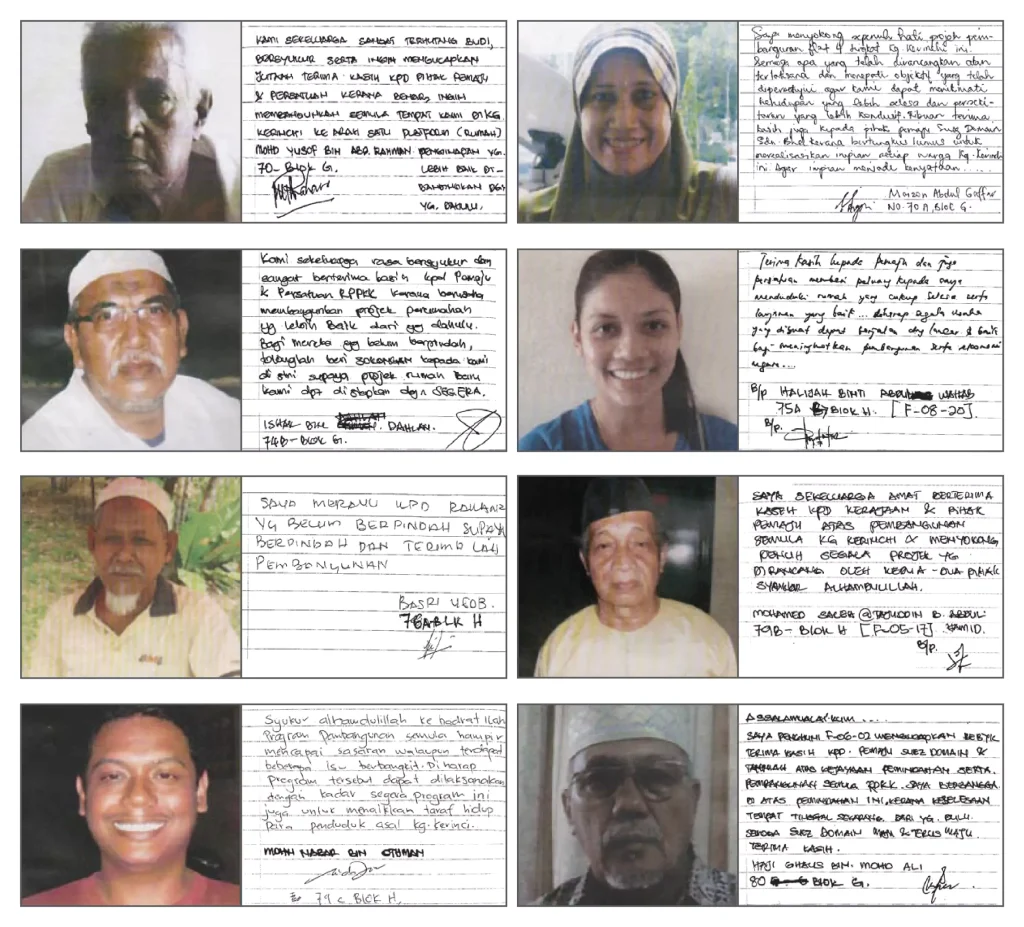 KAMI SEKELUARGA SANGAT TERHUTANG BUDI,
BERSYUKUR SERTA INGIN MENGUCAPKAN
JUTAAN TERIMA KASIH KPD PIHAK PEMAJU
& PERSATUAN KERANA BENAR, INGIN
MEMBANGUNKAN SEMULA TEMPAT KAMI DI KG
KERINCHI KE ARAH SATU PLATFORM (RUMAH)
MOHD YUSOF BIH ABD. RAHMAN. PENGINAPAN YG.
70- BLOK G. LEBIH BAIK DI-
BANDINGKAN DGN
YG. DAHULU.
Saya menyokong sepenuh hati projek pem-
bangunan flat 4 tingkat Kg. Kerinchi ini.
Semoga apa yang telah dirancangkan akan
terlaksana dan menepati objektif yang telah
dipersetujui agar kami dapat menikmati
kehidupan yang lebih selesa dan perseki-
taran yang lebih kondusif. Ribuan terima
kasih juga kepada pihak pemaju Suez Domain
Sdn. Bhd kerana bertungkus lumus untuk
merealisasikan impian setiap warga Kg. Kerinchi
ini agar impian menjadi kenyataan.....
Abdul Gaffar
NO. 70 A, BLOK G.
Kami sekeluarga rasa bersyukur dan
sangat berterima kasih kpd Pemaju
& Persatuan RPPKK kerana berusaha
membangunkan projek perumahan
yg lebih baik dari yg dahulu.
Bagi mereka yg belum berpindah,
tolonglah beri SOKONGAN kepada kami
di sini supaya projek rumah baru
kami dpt di siapkan dgn SEGERA.
ISHAK BIN DAHLAN.
74B- BLOK G.
Terima Kasih kepada Pemaju dan juga
persatuan memberi peluang kepada saya
menduduki rumah yang cukup selesa serta
layanan yang baik... diharap segala usaha
yang dibuat dapat berjalan dgn lancar & baik
bagi meningkatkan pembangunan serta ekonomi
negara....
B/p HALIJAH BINTI ABDUL WAHAB
75A BLOK H. [F-08-20]
B/p.
SAYA MERAYU KPD RAKAN2
YG BELUM BERPINDAH SUPAYA
BERPINDAH DAN TERIMA LAH
PEMBANGUNAN
BASRI UCOB.
76A-BLK H
SAYA SEKELUARGA AMAT BERTERIMA
KASEH KPD KERAJAAN & PIHAK
PEMAJU ATAS PEMBANGUNAN
SEMULA KG KERINCHI & MENYOKONG
PENUH SEGALA PROJEK YG
DIRANCANG OLEH KEDUA-DUA PIHAK
SYUKUR ALHAMDULILLAH.
MOHAMED SALEH @ TAJUDDIN B. ABDUL
79B- BLOK H [F-05-17] HAMID.
B/p.
Syukur alhamdulillah ke hadrat Ilahi
Program Pembangunan semula hampir
mencapai sasaran walaupun terdapat
beberapa isu berbangkit. Di harap
program tersebut dapat dilaksanakan
dengan kadar segera. program ini
juga untuk menaikkan taraf hidup
para penduduk asal kg. kerinci.
MOHD NAZAR BIN OTHMAN
79 C BLOK H.
ASSALAMUALAIKUM....
SAYA PENGHUNI F-06-02 MENGUCAPKAN BERBYK
TERIMA KASIH KPD. PEMAJU SUEZ DOMAIN &
TAHNIAH ATAS KEJAYAAN PEMINDAHAN SERTA
PEMBANGUNAN SEMULA RPPKK. SAYA BERBANGGA
DI ATAS PEMINDAHAN INI, KERANA KESELESAAN
TEMPAT TINGGAL SEKARANG DARI YG. DULU.
SEMOGA SUEZ DOMAIN MAJU & TERUS MAJU.
TERIMA KASIH.
HAJI GHAUS BIN. MOHD ALI
80 BLOK G.